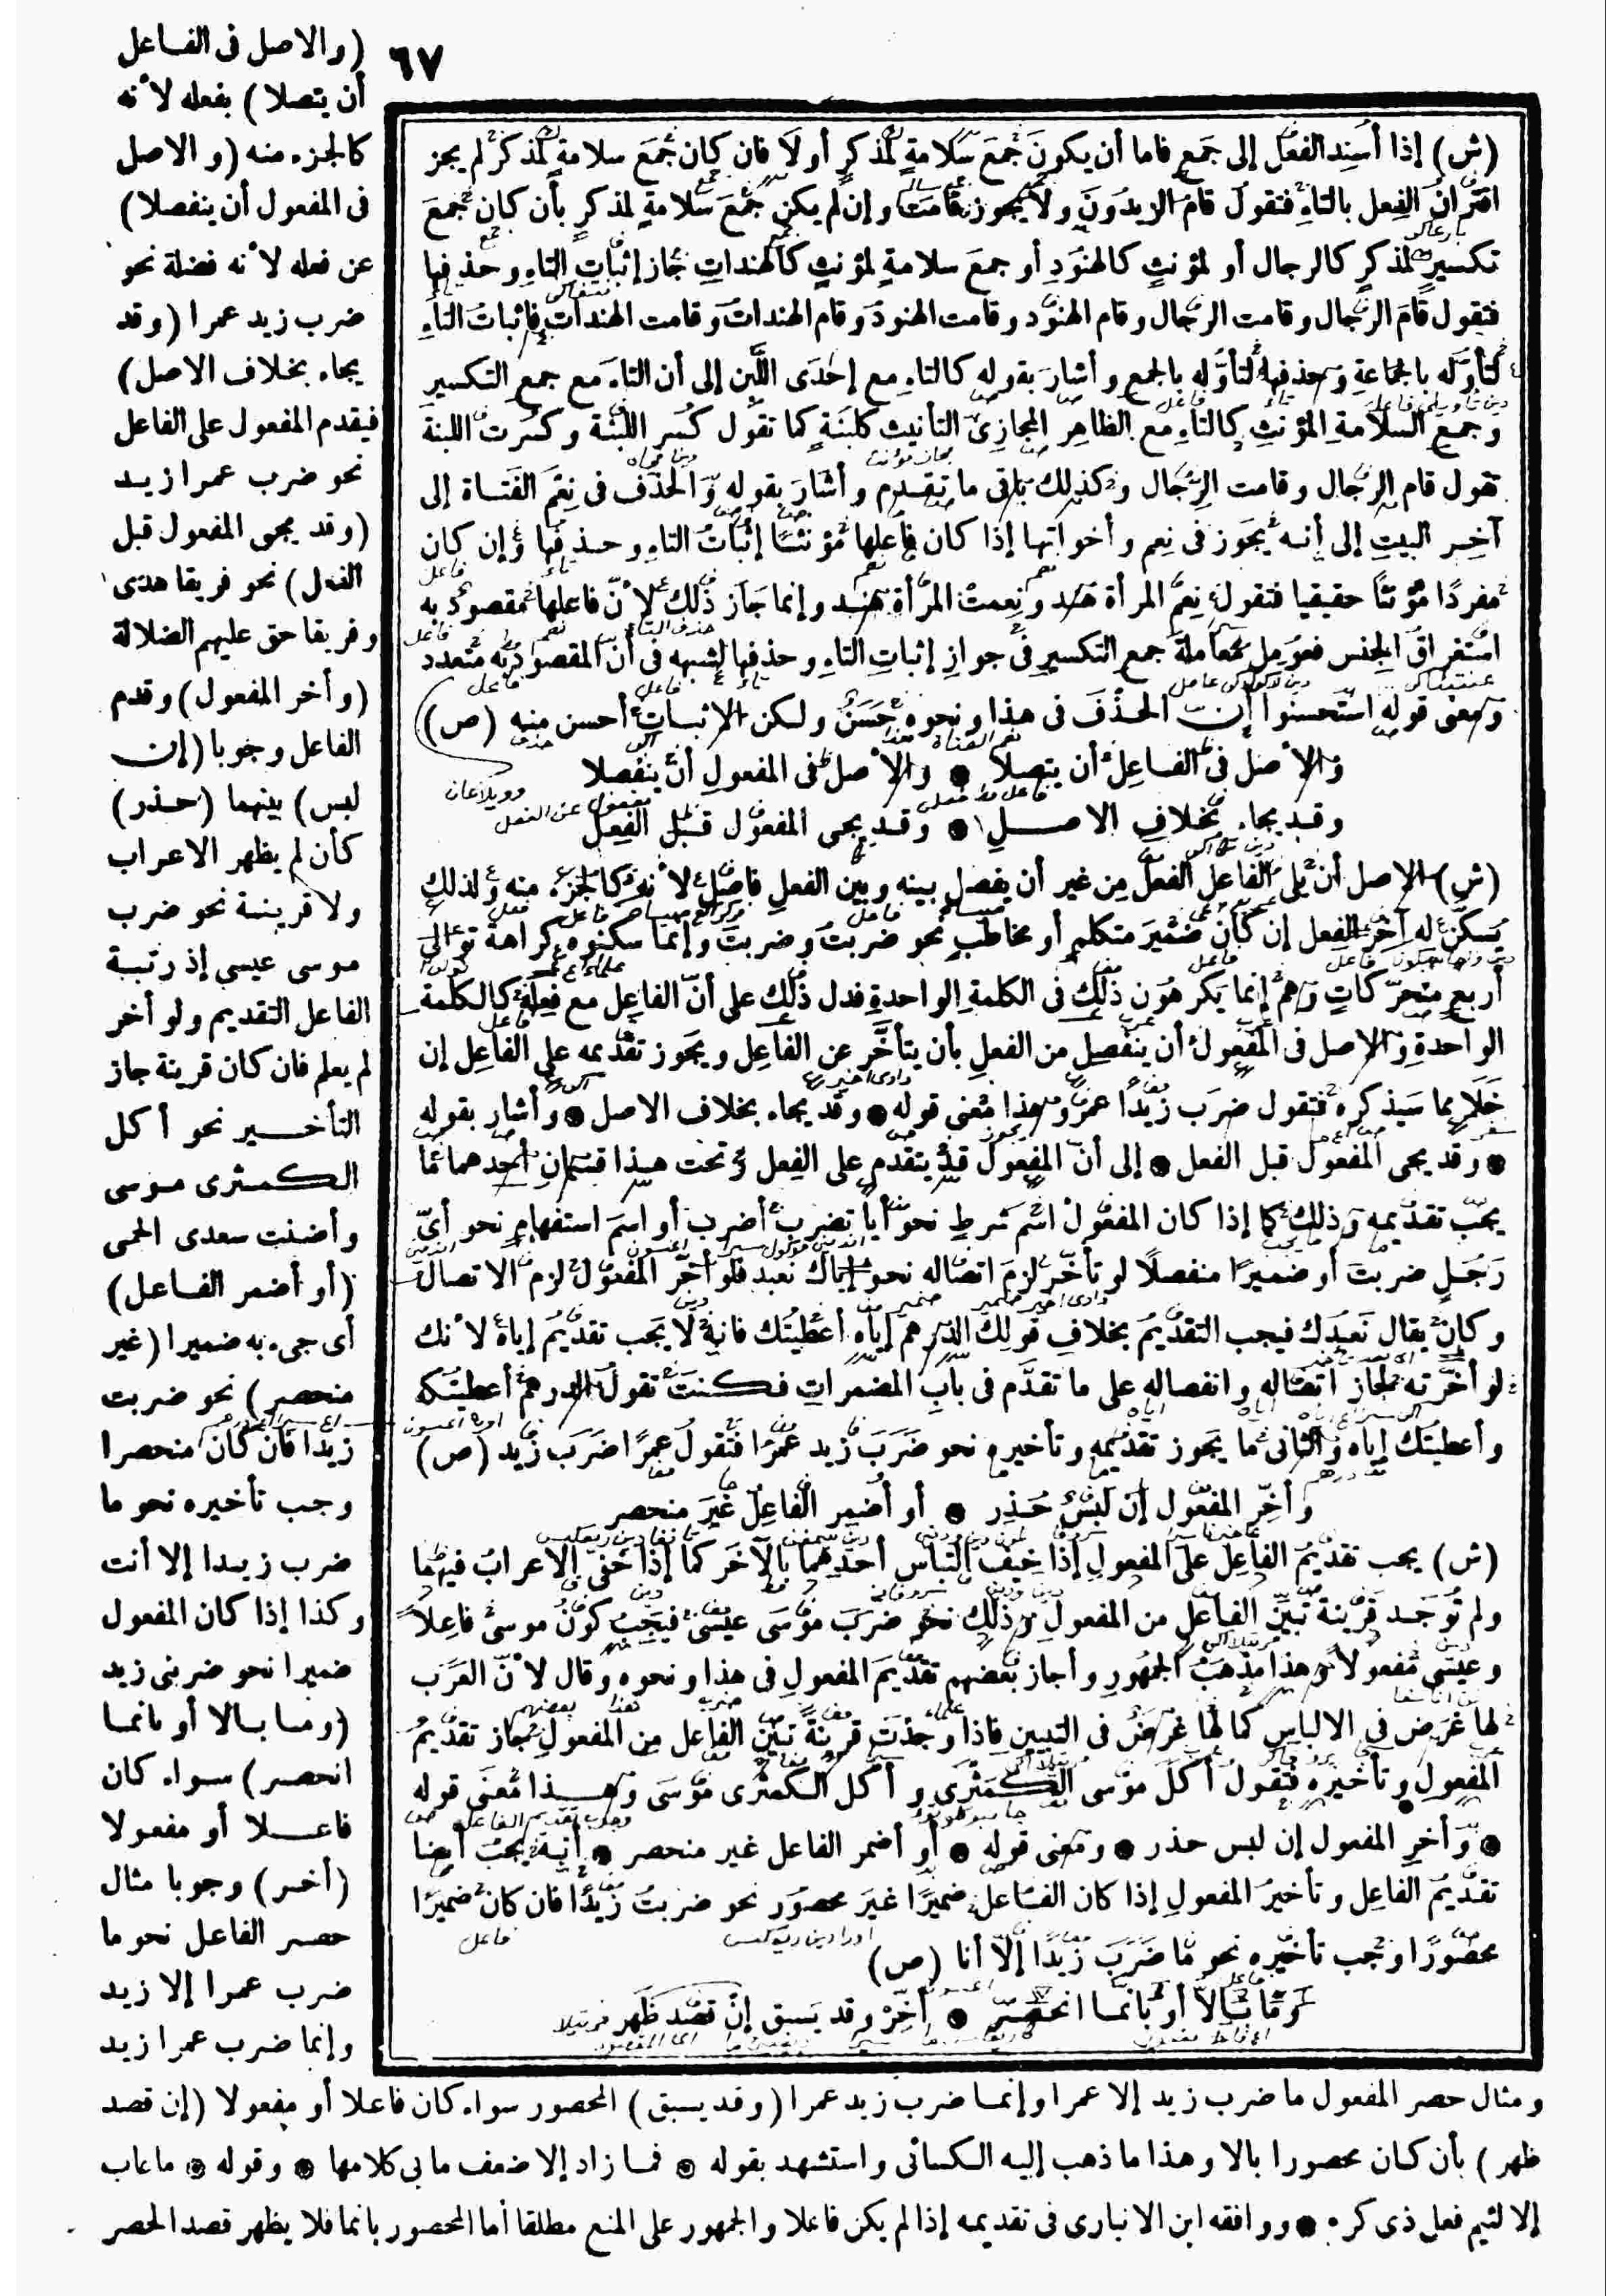 ٦٧
(ش) إذا أسند الفعل إلى جمع فاما أن يكون جمع سلامة لمذكر أولا فان كان جمع سلامة لمذكر لم يجز
اقتران الفعل بالتاء فتقول قام الزيدون ولا يجوز قامت وإن لم يكن جمع سلامة لمذكر بأن كان جمع
تكسير لمذكر كالرجال أو لمؤنث كالهنود أو جمع سلامة لمؤنث كالهندات جاز إثبات التاء وحذفها
فتقول قام الرجال وقامت الرجال وقام الهنود وقامت الهنود وقام الهندات وقامت الهندات فاثبات التاء
لتأوله بالجماعة وحذفها لتأوله بالجمع وأشار بقوله كالتاء مع إحدى اللبن إلى أن التاء مع جمع التكسير
وجمع السلامة المؤنث كالتاء مع الظاهر المجازى التأنيث كلبنة كما تقول كسر اللبنة وكسرت اللبنة
تقول قام الرجال وقامت الرجال وكذلك باقى ما تقدم وأشار بقوله والحذف فى نعم الفتاة إلى
آخر البيت إلى إنه يجوز فى نعم وأخواتها إذا كان فاعلها مؤنثا إثبات التاء وحذفها وإن كان
مفردا مؤنثا حقيقيا فتقول نعم المرأة هند ونعمت المرأة هند وإنما جاز ذلك لأن فاعلها مقصود به
استغراق الجنس فعومل معاملة جمع التكسير فى جواز إثبات التاء وحذفها لشبهه فى أن المقصود به متعدد
ومعنى قوله استحسنوا إن الحذف فى هذا ونحوه حسن ولكن الاثبات أحسن منه (ص)
والأصل فى الفاعل أن يتصلا ● والأصل فى المفعول أن ينفصلا
وقد يجاء بخلاف الاصل ● وقد يجى المفعول قبل الفعل
(ش) الاصل أن يلى الفاعل الفعل من غير أن يفصل بينه وبين الفعل فاصل لأنه كالجزء منه ولذلك
يسكن له آخر الفعل إن كان ضمير متكلم أو مخاطب نحو ضربت وضربت وإنما سكنوه كراهة توالى
أربع متحركات وهم إنما يكرهون ذلك فى الكلمة الواحدة فدل ذلك على أن الفاعل مع فعله كالكلمة
الواحدة والاصل فى المفعول أن ينفصل من الفعل بأن يتأخر عن الفاعل ويجوز تقديمه على الفاعل إن
خلا مما سيذكره فتقول ضرب زيدا عمرو وهذا معنى قوله ● وقد يجاء بخلاف الاصل ● وأشار بقوله
● وقد يجى المفعول قبل الفعل ● إلى أن المفعول قد يتقدم على الفعل وتحت هذا قسمان أحدهما ما
يجب تقديمه وذلك كما إذا كان المفعول اسم شرط نحو أيا تضرب أضرب أو اسم استفهام نحو أى
رجل ضربت أو ضميرا منفصلا لو تأخر لزم اتصاله نحو إياك نعبد فلو أخر المفعول لزم الاتصال
وكان يقال نعبدك فيجب التقديم بخلاف قولك الدرهم إياه أعطيتك فانه لا يجب تقديم إياه لأنك
لو أخرته لجاز اتصاله وانفصاله على ما تقدم فى باب المضمرات فكنت تقول الدرهم أعطيتكه
وأعطيتك إياه والثانى ما يجوز تقديمه وتأخيره نحو ضرب زيد عمرا فتقول عمرا ضرب زيد (ص)
وأخر المفعول إن لبس حذر ● أو أضمر الفاعل غير منحصر
(ش) يجب تقديم الفاعل على المفعول إذا خيف التباس أحدهما بالآخر كما إذا خفى الاعراب فيهما
ولم توجد قرينة تبين الفاعل من المفعول وذلك نحو ضرب موسى عيسى فيجب كون موسى فاعلا
وعيسى مفعولا وهذا مذهب الجمهور وأجاز بعضهم تقديم المفعول فى هذا ونحوه وقال لأن العرب
لها غرض فى الالباس كما لها غرض فى التبيين فاذا وجدت قرينة تبين الفاعل من المفعول جاز تقديم
المفعول وتأخيره فتقول أكل موسى الكمثرى وأكل الكمثرى موسى وهذا معنى قوله
● وأخر المفعول إن لبس حذر ● ومعنى قوله ● أو أضمر الفاعل غير منحصر ● أنه يجب أيضا
تقديم الفاعل وتأخير المفعول إذا كان الفاعل ضميرا غير محصور نحو ضربت زيدا فان كان ضميرا
محصورا وجب تأخيره نحو ما ضرب زيدا إلا أنا (ص)
وما بالا أو بانما انحصر ● أخر وقد يسبق إن قصد ظهر
(والاصل فى الفاعل
أن يتصلا) بفعله لأنه
كالجزء منه (والاصل
فى المفعول أن ينفصلا)
عن فعله لأنه فضلة نحو
ضرب زيد عمرا (وقد
يجاء بخلاف الاصل)
فيقدم المفعول على الفاعل
نحو ضرب عمرا زيد
(وقد يجى المفعول قبل
الفعل) نحو فريقا هدى
وفريقا حق عليهم الضلالة
(وأخر المفعول) وقدم
الفاعل وجوبا (إن
لبس) بينهما (حذر)
كأن لم يظهر الاعراب
ولا قرينة نحو ضرب
موسى عيسى إذ رتبة
الفاعل التقديم ولو أخر
لم يعلم فان كان قرينة جاز
التأخير نحو أكل
الكمثرى موسى
وأضنت سعدى الحمى
(أو أضمر الفاعل)
أى جىء به ضميرا (غير
منحصر) نحو ضربت
زيدا فان كان منحصرا
وجب تأخيره نحو ما
ضرب زيدا إلا أنت
وكذا إذا كان المفعول
ضميرا نحو ضربنى زيد
(وما بالا أو بانما
انحصر) سواء كان
فاعلا أو مفعولا
(أخر) وجوبا مثال
حصر الفاعل نحو ما
ضرب عمرا إلا زيد
وإنما ضرب عمرا زيد
ومثال حصر المفعول ما ضرب زيد إلا عمرا وإنما ضرب زيد عمرا (وقد يسبق) المحصور سواء كان فاعلا أو مفعولا (إن قصد
ظهر) بأن كان محصورا بالا وهذا ما ذهب إليه الكسائى واستشهد بقوله ● فما زاد إلا ضعف ما بى كلامها ● وقوله ● ما عاب
إلا لئيم فعل ذى كرم ● ووافقه ابن الانبارى فى تقديمه إذا لم يكن فاعلا والجمهور على المنع مطلقا أما المحصور بانما فلا يظهر قصد الحصر